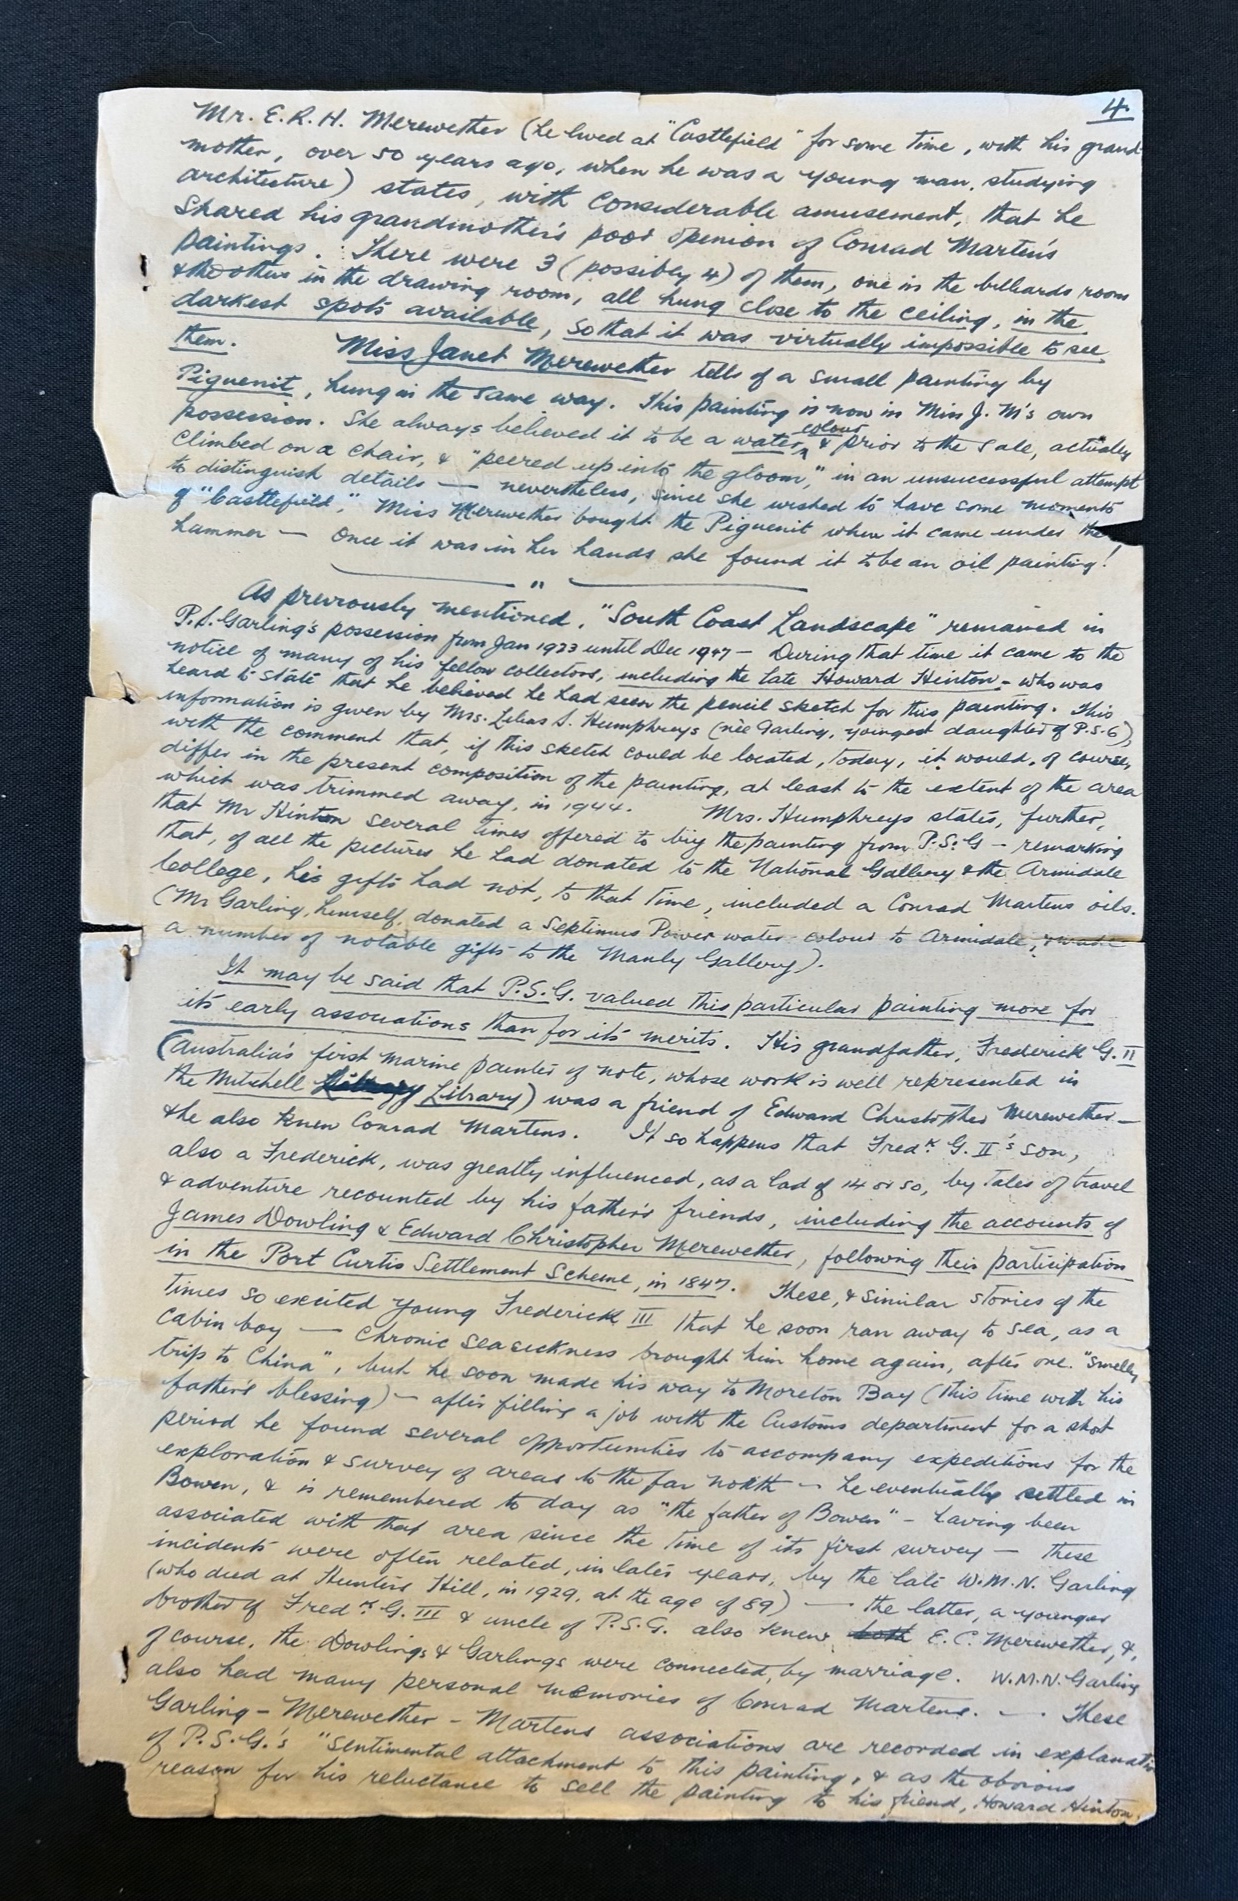 4.
Mr. E.R.H. Merewether (he lived at "Castlefield" for some time, with his grand-
mother, over 50 years ago, when he was a young man, studying
architecture) states, with considerable amusement, that he
shared his grandmother's poor opinion of Conrad Martens
paintings. There were 3 (possibly 4) of them, one in the billiards room
& the others in the drawing room, all hung close to the ceiling, in the
darkest spots available, so that it was virtually impossible to see
them. Miss Janet Merewether tells of a small painting by
Piguenit, hung in the same way. This painting is now in Miss J. M's own
possession. She always believed it to be a water colour & prior to the sale, actually
climbed on a chair, & "peered up into the gloom," in an unsuccessful attempt
to distinguish details — nevertheless, since she wished to have some momento
of "Castlefield", Miss Merewether bought the Piguenit when it came under the
hammer — Once it was in her hands she found it to be an oil painting!
As previously mentioned, "South Coast Landscape" remained in
P.S. Garling's possession from Jan 1923 until Dec 1947 — During that time it came to the
notice of many of his fellow collectors, including the late Howard Hinton - who was
heard to state that he believed he had seen the pencil sketch for this painting. This
information is given by Mrs. Lilias S. Humphreys (née Garling, youngest daughter of P.S.G),
with the comment that, if this sketch could be located, today, it would, of course,
differ in the present composition of the painting, at least to the extent of the area
which was trimmed away, in 1944. Mrs. Humphreys states, further,
that Mr Hinton several times offered to buy the painting from P.S.G — remarking
that, of all the pictures he had donated to the National Gallery & the Armidale
College, his gifts had not, to that time, included a Conrad Martens oils.
(Mr Garling, himself, donated a Septimus Power water-colour to Armidale,
a number of notable gifts to the Manly Gallery).
It may be said that P.S.G. valued this particular painting more for
it's early associations than for it's merits. His grandfather, Frederick G. II
(Australia's first marine painter of note, whose work is well represented in
the Mitchell Library) was a friend of Edward Christopher Merewether —
& he also knew Conrad Martens. It so happens that Fredk. G. II's son,
also a Frederick, was greatly influenced, as a lad of 14 or so, by tales of travel
& adventure recounted by his father's friends, including the accounts of
James Dowling & Edward Christopher Merewether, following their participation
in the Port Curtis Settlement Scheme, in 1847. These, & similar stories of the
times so excited young Frederick III that he soon ran away to sea, as a
cabin boy — chronic seasickness brought him home again, after one "smelly
trip to China", but he soon made his way to Moreton Bay (this time with his
father's blessing) — after filling a job with the Customs department for a short
period he found several opportunities to accompany expeditions for the
exploration & survey of areas to the far north — he eventually settled in
Bowen, & is remembered to day as "the father of Bowen" — having been
associated with that area since the time of its first survey — These
incidents were often related, in later years, by the late W.M.N. Garling
(who died at Hunters Hill, in 1929, at the age of 89) — the latter, a younger
brother of Fredk. G. III & uncle of P.S.G. also knew both E.C. Merewether, &,
of course, the Dowlings & Garlings were connected, by marriage. W.M.N. Garling
also had many personal memories of Conrad Martens. — These
Garling - Merewether - Martens associations are recorded in explanation
of P.S.G.'s "sentimental attachment to this painting, & as the obvious
reason for his reluctance to sell the painting to his friend, Howard Hinton.